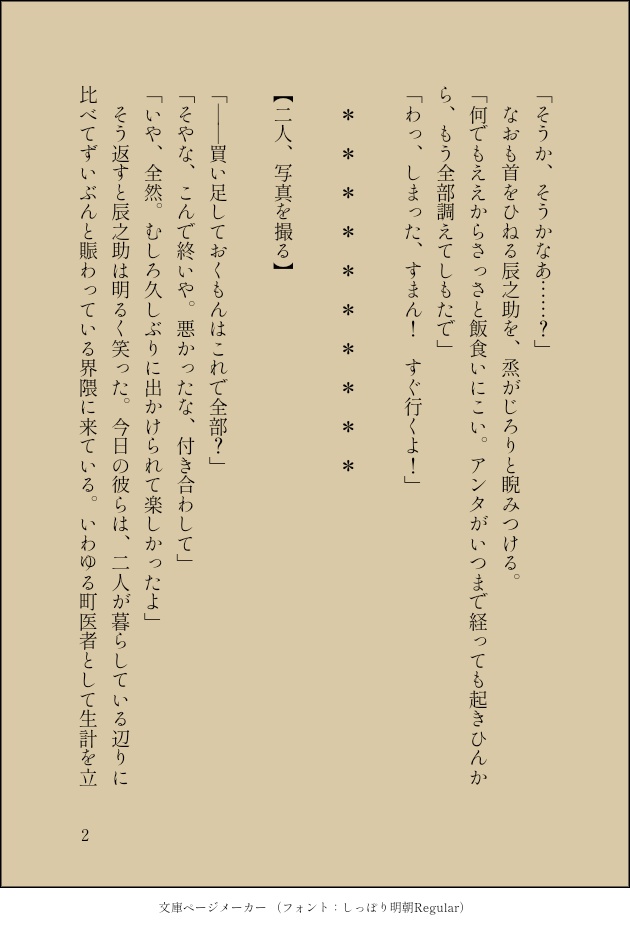 「そうか、そうかなあ……？」
　なおも首をひねる辰之助を、烝がじろりと睨みつける。
「何でもええからさっさと飯食いにこい。アンタがいつまで経っても起きひんか
ら、もう全部調えてしもたで」
「わっ、しまった、すまん！　すぐ行くよ！」
＊　＊　＊　＊　＊　＊　＊　＊　＊　＊
【二人、写真を撮る】
「――買い足しておくもんはこれで全部？」
「そやな、こんで終いや。悪かったな、付き合わして」
「いや、全然。むしろ久しぶりに出かけられて楽しかったよ」
　そう返すと辰之助は明るく笑った。今日の彼らは、二人が暮らしている辺りに
比べてずいぶんと賑わっている界隈に来ている。いわゆる町医者として生計を立
2
文庫ページメーカー（フォント：しっぽり明朝Regular）